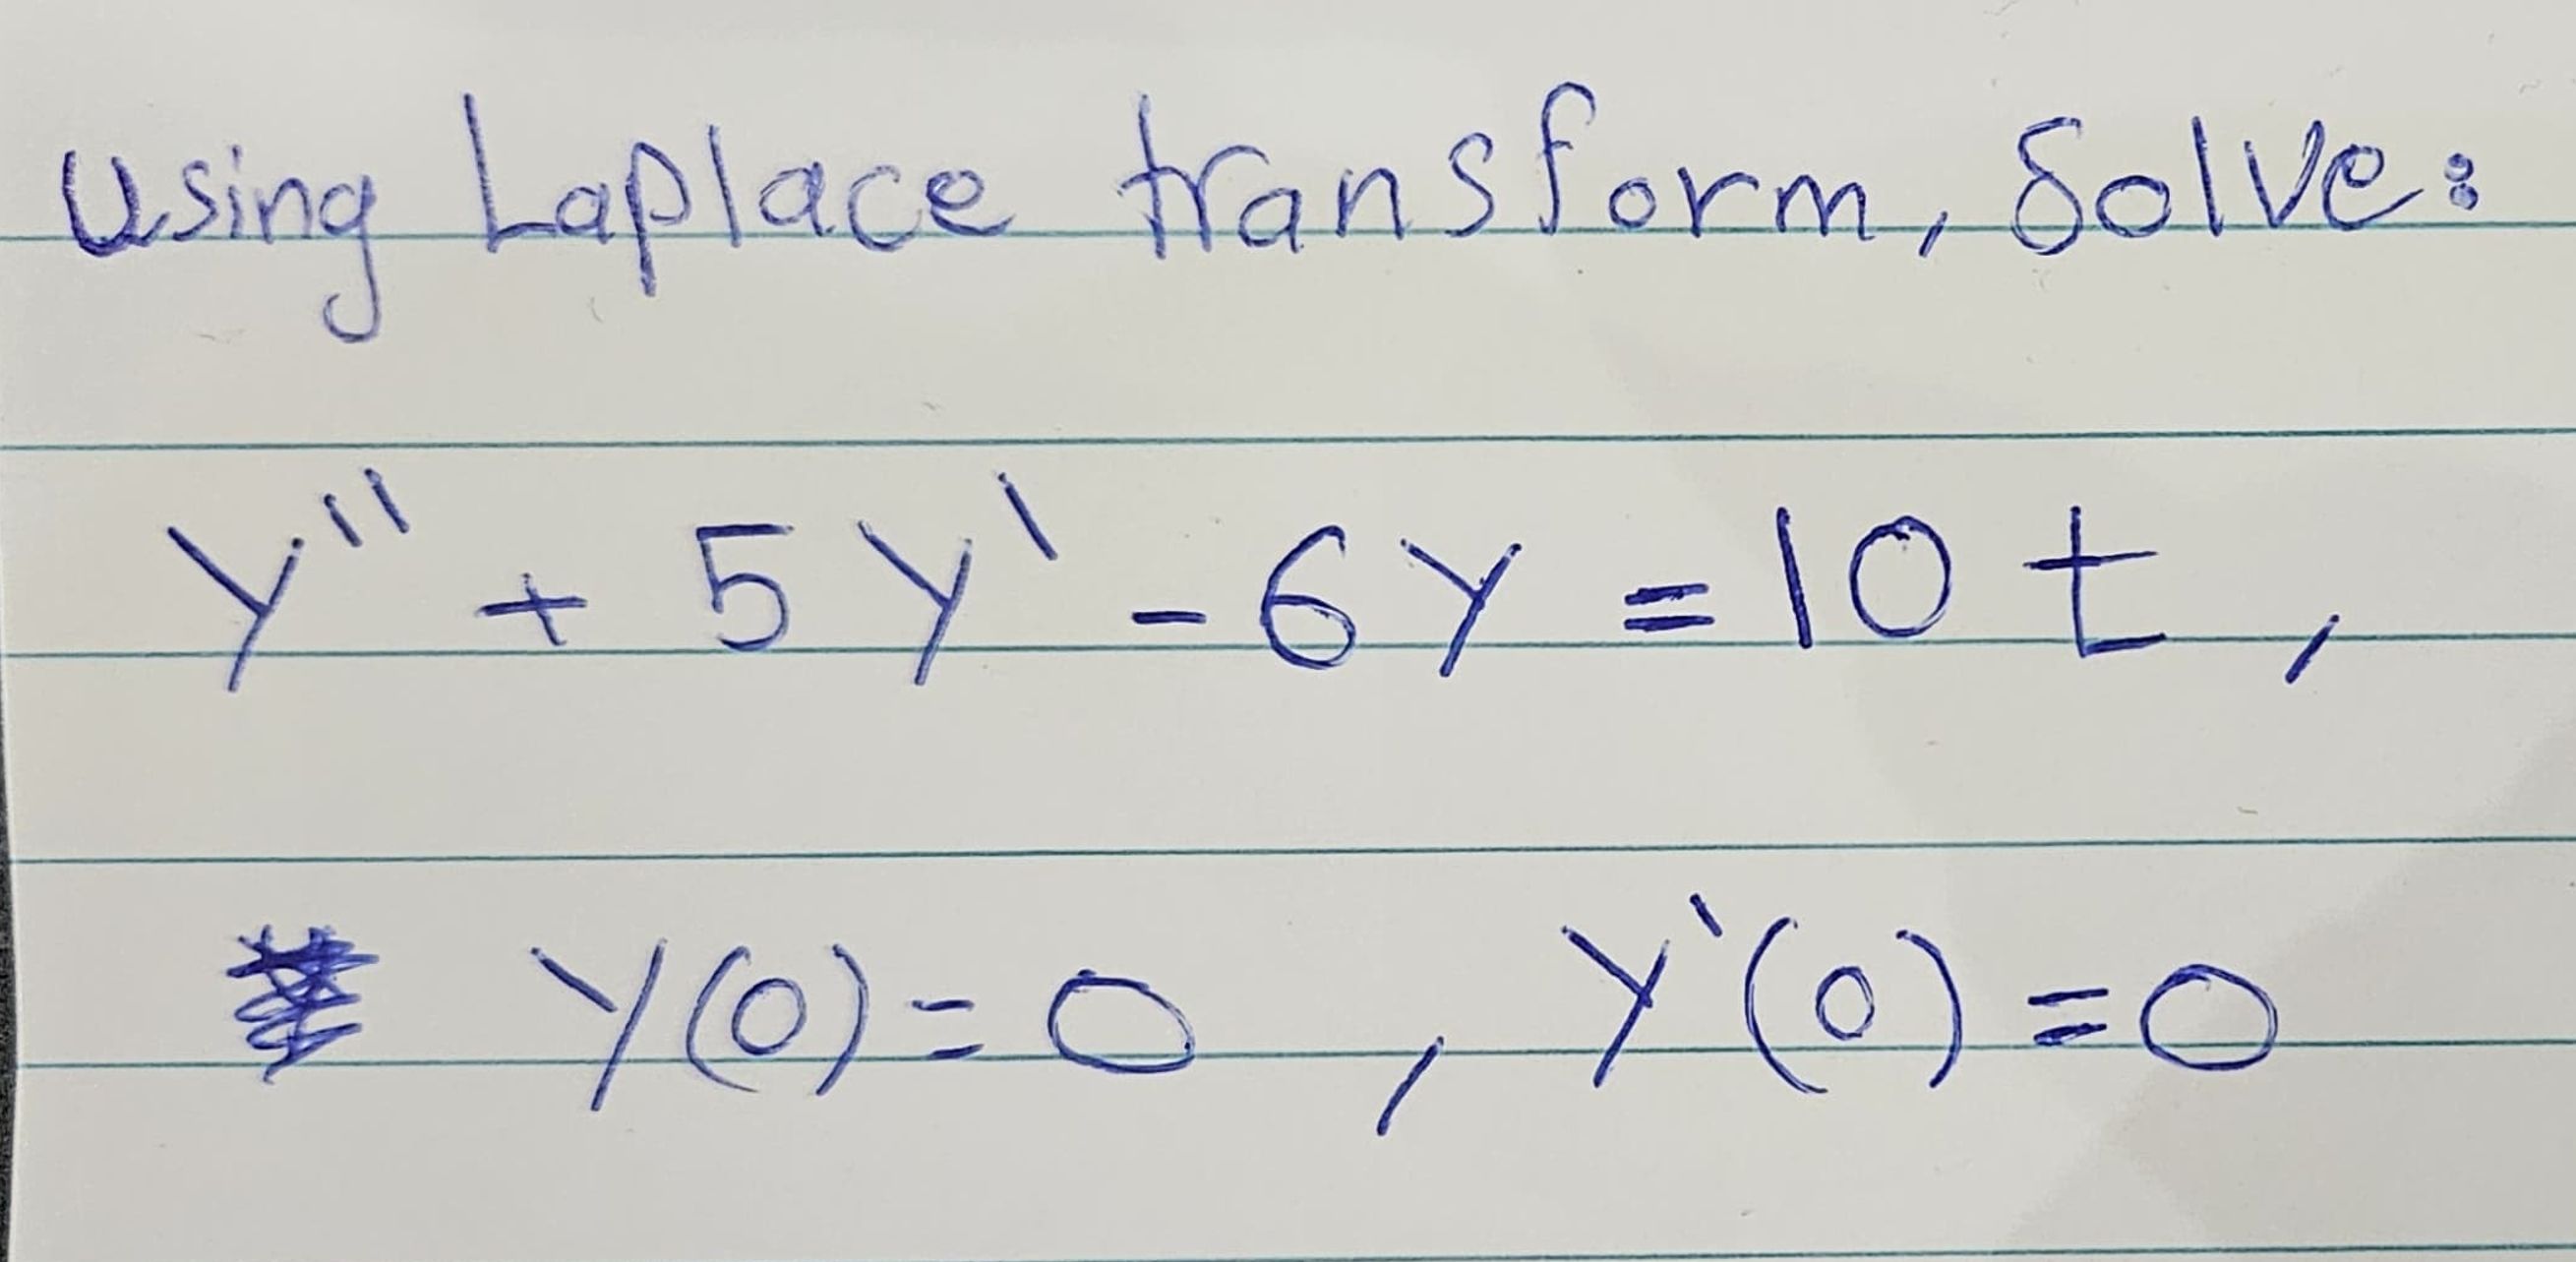 Using Laplace transform, Solve:
y'' + 5y' - 6y = 10 t,
y(0) = 0 , y'(0) = 0